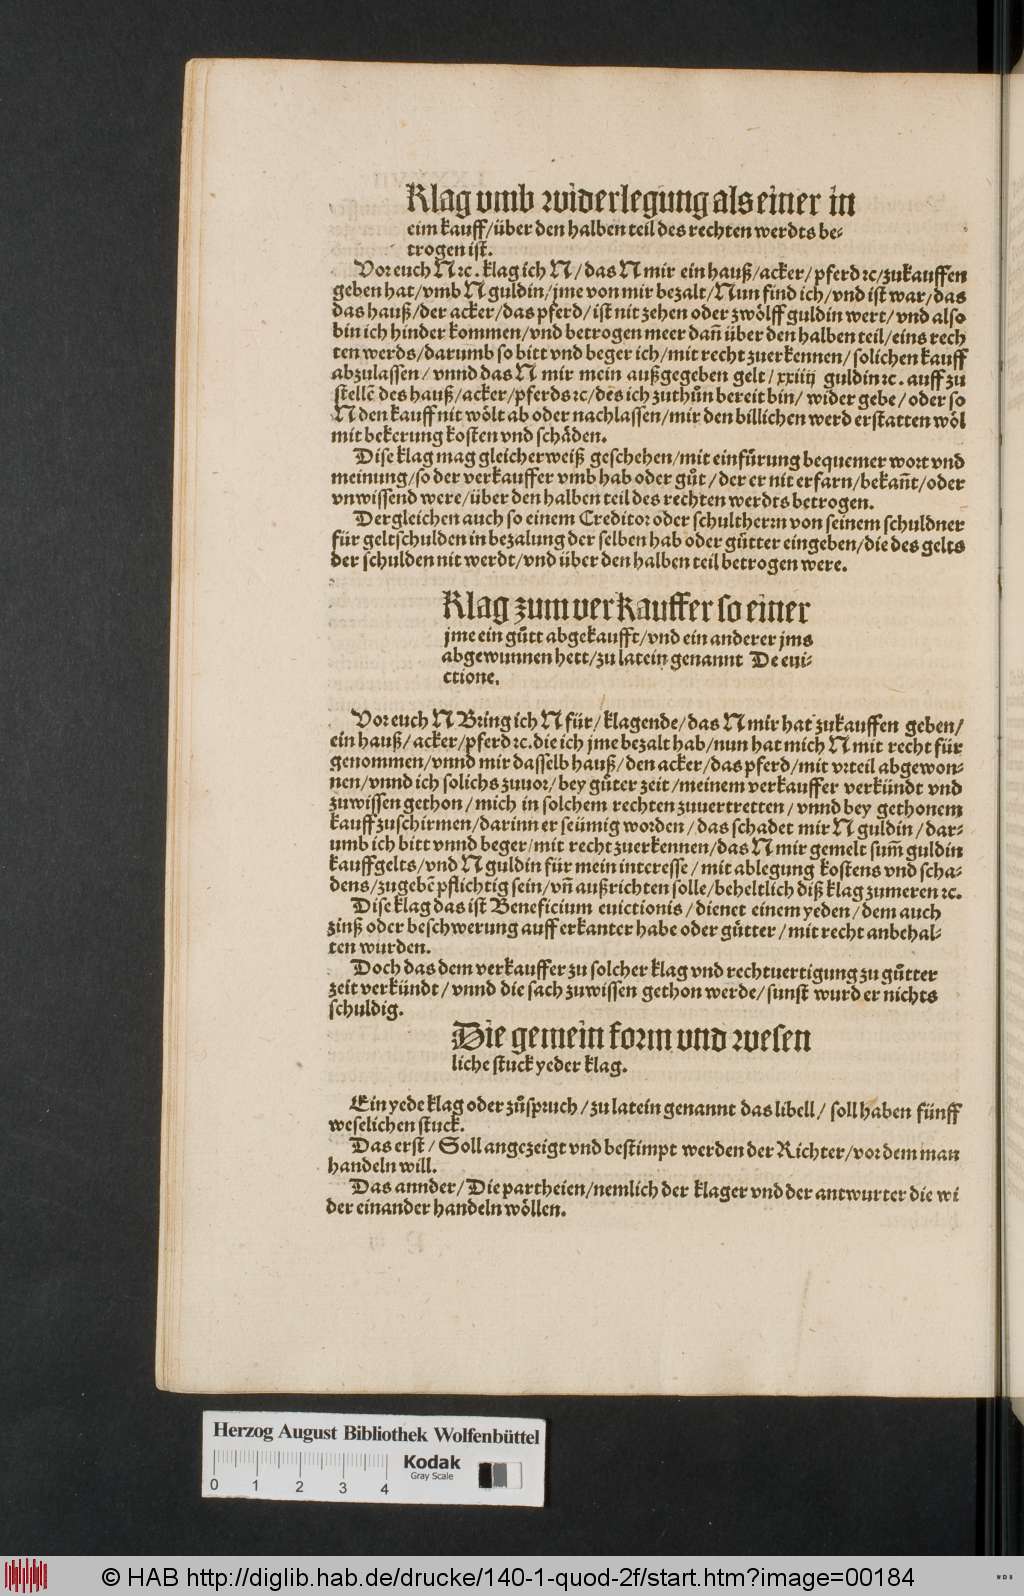 Klag vmb widerlegung als einer in
eim kauff/über den halben teil des rechten werdts be⸗
trogen ist.
Vor euch N ꝛc. klag ich N/das N mir ein hauß/acker/pferd ꝛc/zukauffen
geben hat/vmb N guldin/jme von mir bezalt/Nun find ich/vnd ist war/das
das hauß/der acker/das pferd/ist nit zehen oder zwölff guldin wert/vnd also
bin ich hinder kommen/vnd betrogen meer dañ über den halben teil/eins rech
ten werds/darumb so bitt vnd beger ich/mit recht zuerkennen/solichen kauff
abzulassen/vnnd das N mir mein außgegeben gelt/xxiiij guldin ꝛc. auff zu
stellē des hauß/acker/pferds ꝛc/des ich zuthůn bereit bin/wider gebe/oder so
N den kauff nit wölt ab oder nachlassen/mir den billichen werd erstatten wöl
mit bekerung kosten vnd schäden.
Dise klag mag gleicherweiß geschehen/mit einfürung bequemer wort vnd
meinung/so der verkauffer vmb hab oder gůt/der er nit erfarn/bekañt/oder
vnwissend were/über den halben teil des rechten werdts betrogen.
Dergleichen auch so einem Creditor oder schultherrn von seinem schuldner
für geltschulden in bezalung der selben hab oder gütter eingeben/die des gelts
der schulden nit werdt/vnd über den halben teil betrogen were.
Klag zum verkauffer so einer
jme ein gůtt abgekaufft/vnd ein anderer jms
abgewunnen hett/zu latein genannt De eui⸗
ctione.
Vor euch N Bring ich N für/klagende/das N mir hat zukauffen geben/
ein hauß/acker/pferd ꝛc. die ich jme bezalt hab/nun hat mich N mit recht für
genommen/vnnd mir dasselb hauß/den acker/das pferd/mit vrteil abgewon⸗
nen/vnnd ich solichs zuuor/bey gůter zeit/meinem verkauffer verkündt vnd
zuwissen gethon/mich in solchem rechten zuuertretten/vnnd bey gethonem
kauff zuschirmen/darinn er seümig worden/das schadet mir N guldin/dar⸗
umb ich bitt vnnd beger/mit recht zuerkennen/das N mir gemelt sum̄ guldin
kauffgelts/vnd N guldin für mein interesse/mit ablegung kostens vnd scha⸗
dens/zugebē pflichtig sein/vñ außrichten solle/beheltlich diß klag zumeren ꝛc.
Dise klag das ist Beneficium euictionis/dienet einem yeden/dem auch
zinß oder beschwerung auff erkanter habe oder gütter/mit recht anbehal⸗
ten wurden.
Doch das dem verkauffer zu solcher klag vnd rechtuertigung zu gůtter
zeit verkündt/vnnd die sach zuwissen gethon werde/sunst wurd er nichts
schuldig.
Die gemein form vnd wesen
liche stuck yeder klag.
Ein yede klag oder zůspruch/zu latein genannt das libell/soll haben fünff
weselichen stuck.
Das erst/Soll angezeigt vnd bestimpt werden der Richter/vor dem man
handeln will.
Das annder/Die partheien/nemlich der klager vnd der antwurter die wi
der einander handeln wöllen.
Herzog August Bibliothek Wolfenbüttel
Kodak
Gray Scale
0 1 2 3 4
© HAB http://diglib.hab.de/drucke/140-1-quod-2f/start.htm?image=00184